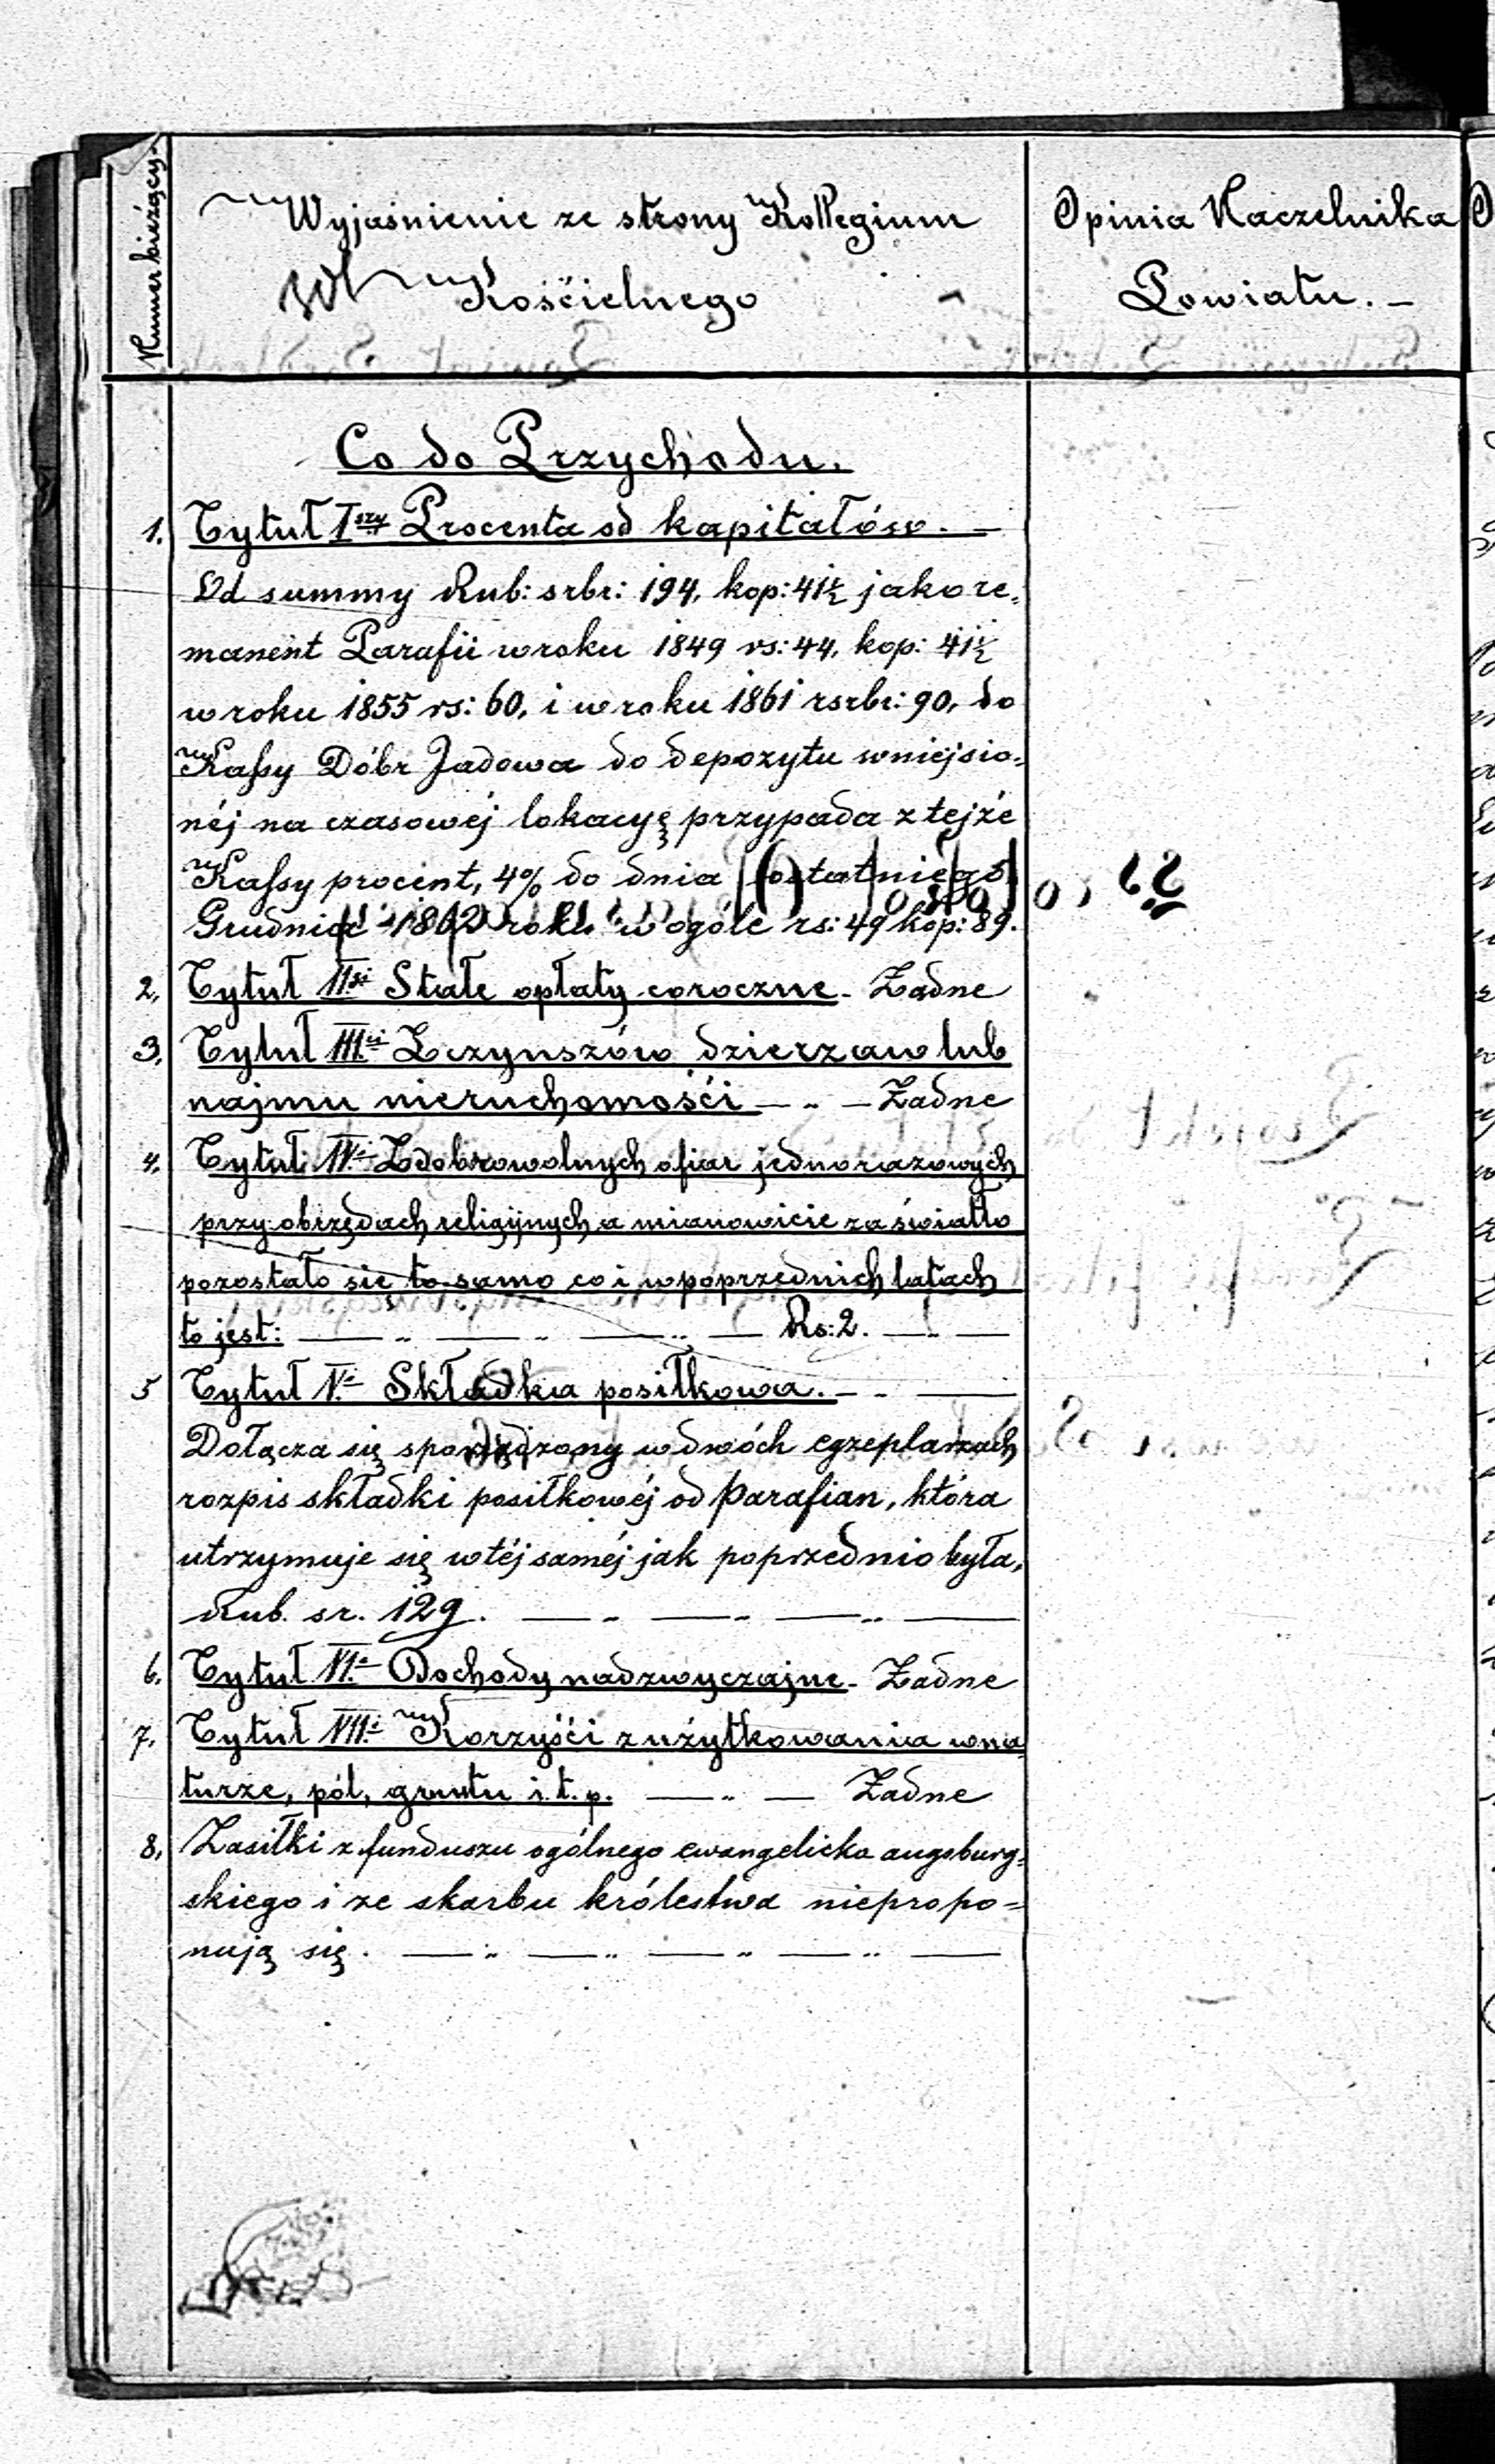 Numer bieżący.
Wyjaśnienie ze strony Kollegium
Kościelnego
Opinia Naczelnika
Powiatu. —
Co do Przychodu.
1. Tytuł Iszy Procenta od kapitałów. —
Od summy Rub: srbr: 194, kop: 41½ jako re=
manent Parafii w roku 1849 rs: 44, kop: 41½
w roku 1855 rs: 60, i w roku 1861 rsrbr: 90, do
Kassy Dóbr Jadowa do depozytu wniejsio=
néj na czasowéj lokacyę przypada z tejże
Kassy procent, 4% do dnia ostatniego
Grudnia 1862 roku w ogóle rs: 49 kop: 89.
2. Tytuł IIgi Stałe opłaty coroczne - Żadne
3. Tytuł IIIci Z czynszów dzierzaw lub
najmu nieruchomośći — „ — Żadne
4. Tytuł IV. Z dobrowolnych ofiar jednorazowych
przy obrzędach religijnych a mianowicie za światło
pozostało się to samo co i w poprzednich latach
to jest: — „ — „ — „ — Rs: 2. — „ —
5 Tytuł V. Składka posiłkowa. — - —
Dołącza się sporządzony w dwóch egzeplarzach
rozpis składki posiłkowéj od Parafian, która
utrzymuje się w téj saméj jak poprzednio była,
Rub. sr. 129. — „ — „ — „ —
6. Tytuł VI. Dochody nadzwyczajne - Żadne
7. Tytuł VII. Korzyśći z użytkowania w na
turze, pól, gruntu i. t. p. — „ — Żadne
8. Zasiłki z funduszu ogólnego ewangelicko augsburg=
skiego i ze skarbu królestwa niepropo=
nują się. — „ — „ — „ — „ —